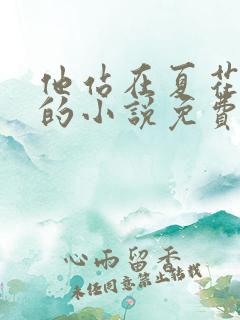 他站在夏花
的小說免費
心雨留香
未经同意禁止转载